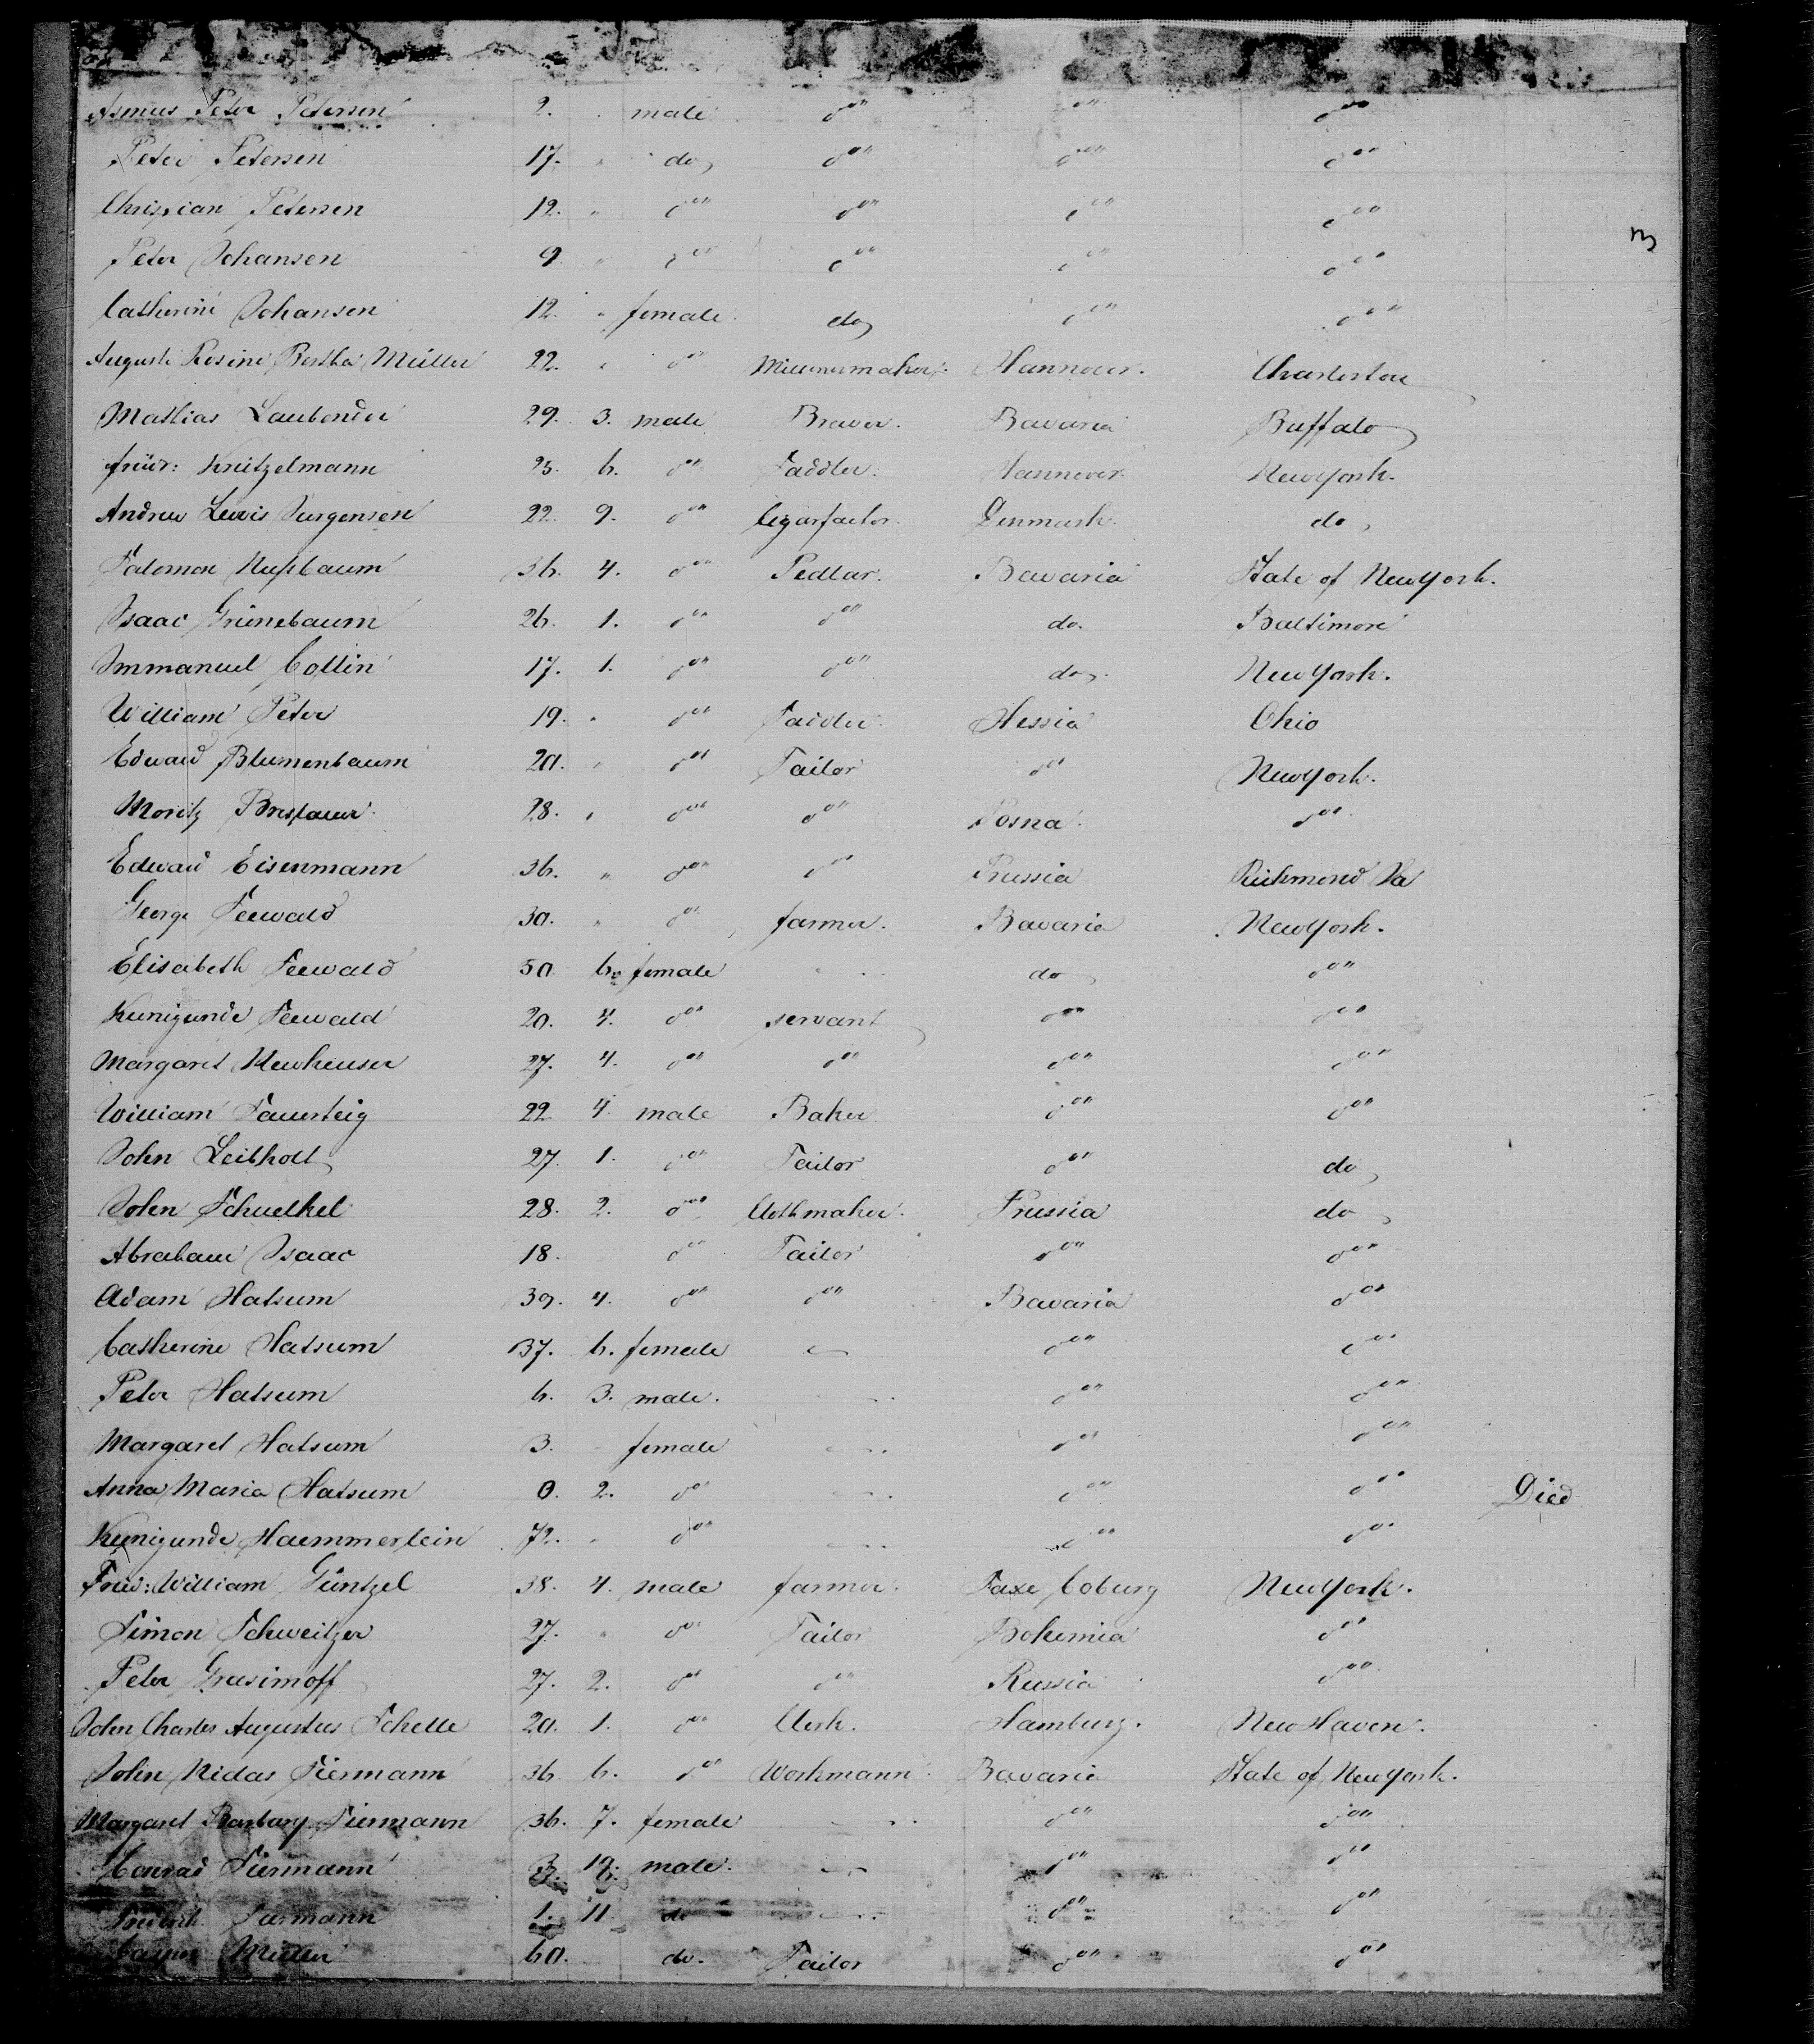 Asmus Peter Petersen 2. " male d°" d°" d°"
Peter Petersen 17. " do d°" d°" d°"
Christian Petersen 12. " d°" d°" d°" d°"
3
Peter Johansen 9. " d°" d°" d°" d°"
Catherine Johansen 12. " female do d°" d°"
Auguste Rosine Bertha Müller 22. " d°" Hannover. Charleston
Mathias Laubender 29. 3. male Brever. Bavaria Buffalo
Knützelmann 25. 6. d°" Saddler. Hannover. New York.
Andrew Lewis Jurgensen 22. 9. d°" Cigarfactor. Denmark. do
Salomon Nußbaum 36. 4. d°" Pedlar. Bavaria State of New York.
Isaac Grünebaum 26. 1. d°" d°" do. Baltimore
Immanuel Collin 17. 1. d°" d°" do. New York.
William Peter 19. " d°" Saddler. Hessia Ohio
Edward Blumenbaum 20. " d°" Tailor d°" New York.
Moritz Breslauer 28. " d°" d°" Posna d°"
Edward Eisenmann 36. " d°" d°" Prussia Richmond Va
George Seewald 30. " d°" farmer. Bavaria New York.
Elisabeth Seewald 50. 6. female - do d°"
Kunigunde Seewald 20. 4. d°" servant d°" d°"
Margaret Newheuser 27. 4. d°" d°" d°" d°"
William Sauersteig 22 4. male Baker d°" d°"
John Leibholt 27. 1. d°" Tailor d°" do
John Schuelkel 28. 2. d°" Clothmaker. Prussia do
Abraham Isaac 18. d°" Tailor d°" d°"
Adam Hatsum 39. 4. d°" d°" Bavaria d°"
Catherine Hatsum 37. 6. female - d°" d°"
Peter Hatsum 6. 3. male. - d°" d°"
Margaret Hatsum 3. - female - d°" d°"
Anna Maria Hatsum 0. 2. d°" - d°" d°" Died
Kunigunde Haemmerlein 72. " d°" - d°" d°"
Fried: William Güntzel 38. 4. male farmer. Saxe Coburg New York.
Simon Schweitzer 27. " d°" Tailor Bohemia d°"
Peter Grasimoff 27. 2. d°" d°" Russia d°"
John Charles Augustus Schelle 20. 1. d°" Clerk. Hamburg. New Haven.
John Nidas Siermann 36. 6. d°" Workmann Bavaria State of New York.
Margaret Barbary Siermann 36. 7. female - d°" d°"
Conrad Siermann 3. male. - d°" d°"
Siermann 1. 11. do - d°" d°"
Müller 60. do. Tailor d°" d°"